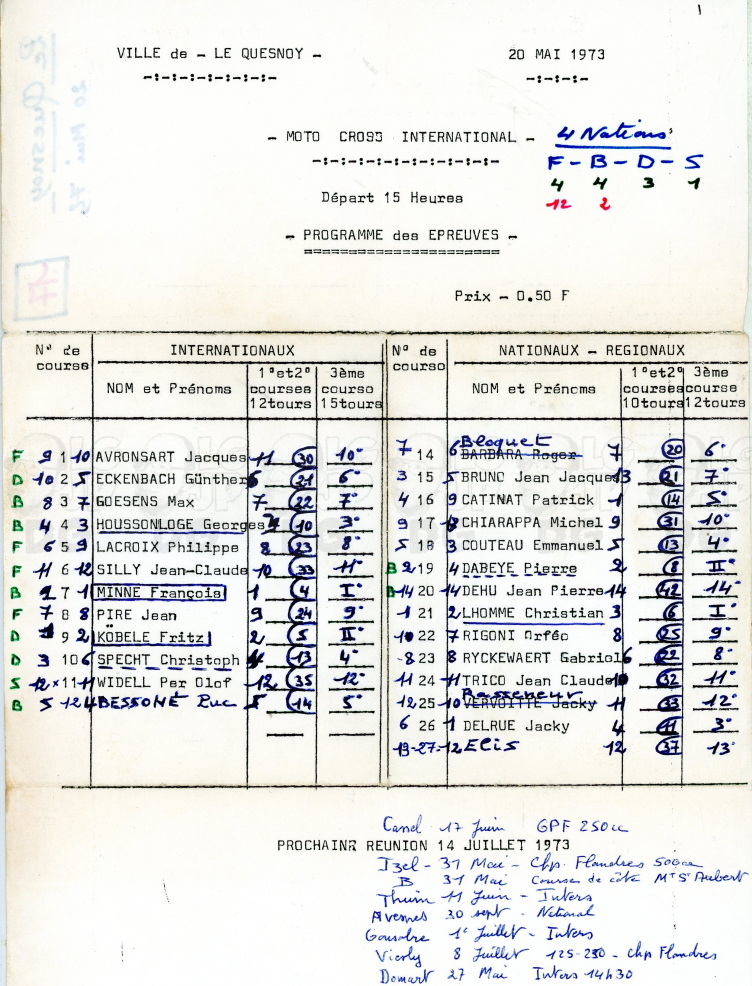 1
VILLE de - LE QUESNOY -
20 MAI 1973
Le Quesnoy
20 Mai 73
- MOTO CROSS INTERNATIONAL -
4 Nations
F - B - D - S
4 4 3 1
12 2
Départ 15 Heures
- PROGRAMME des EPREUVES -
Prix - 0.50 F
N° de course
INTERNATIONAUX
NOM et Prénoms
1°et2° courses 12tours
3ème course 15tours
N° de course
NATIONAUX - REGIONAUX
NOM et Prénoms
1°et2° courses 10tours
3ème course 12tours
F 9 1 10 AVRONSART Jacques 11 30 10°
D 10 2 5 ECKENBACH Günther 6 21 6°
B 8 3 7 GOESENS Max 7 22 7°
B 4 4 3 HOUSSONLOGE Georges 10 3°
F 6 5 9 LACROIX Philippe 8 23 8°
F 11 6 12 SILLY Jean-Claude 10 33 11°
B 2 7 1 MINNE François 1 4 I°
F 7 8 8 PIRE Jean 9 24 9°
D 9 2 KÖBELE Fritz 2 5 II°
D 3 10 6 SPECHT Christoph 4 13 4°
S 12 x 11 11 WIDELL Per Olof 12 35 12°
B 5 12 4 BESSONE Luc 5 14 5°
7 14 6 Bloquet BARBARA Roger 7 20 6°
3 15 5 BRUNO Jean Jacques 13 21 7°
4 16 9 CATINAT Patrick 1 14 5°
9 17 13 CHIARAPPA Michel 9 31 10°
5 18 3 COUTEAU Emmanuel 5 13 4°
B 2 19 4 DABEYE Pierre 2 8 II°
B 14 20 14 DEHU Jean Pierre 14 42 14°
1 21 2 LHOMME Christian 3 6 I°
10 22 7 RIGONI Orféo 8 25 9°
8 23 8 RYCKEWAERT Gabriel 6 22 8°
11 24 11 TRICO Jean Claude 10 32 11°
12 25 10 Rasseneur VERVOITTE Jacky 11 33 12°
6 26 1 DELRUE Jacky 4 11 3°
13-27-12 Elis 12 37 13°
Cassel 17 Juin GPF 250cc
PROCHAINE REUNION 14 JUILLET 1973
Izel - 31 Mai - Chp. Flandres 500cc
B 31 Mai Course de côte Mt St Aubert
Thuin 11 Juin - Inters
Avesnes 30 sept - National
Gousolre 1° Juillet - Inters
Viesly 8 Juillet 125-250 - Chp Flandres
Domart 27 Mai Inters 14h30